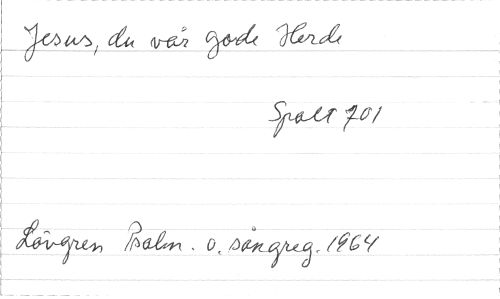 Jesus, du vår gode Herde
Spalt 701
Lövgren Psalm. o. sångreg. 1964